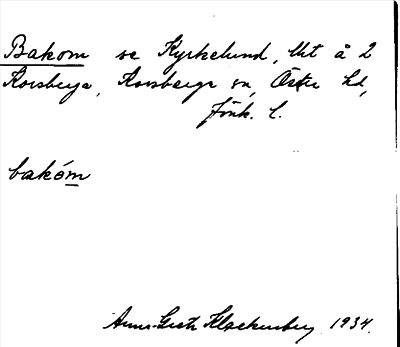 Bakom se Kyrkelund, lht å 2
Korsberga, Korsberga sn, Östra hd,
Jönk. l.
bakóm
Anna-Greta Klackenberg 1934.